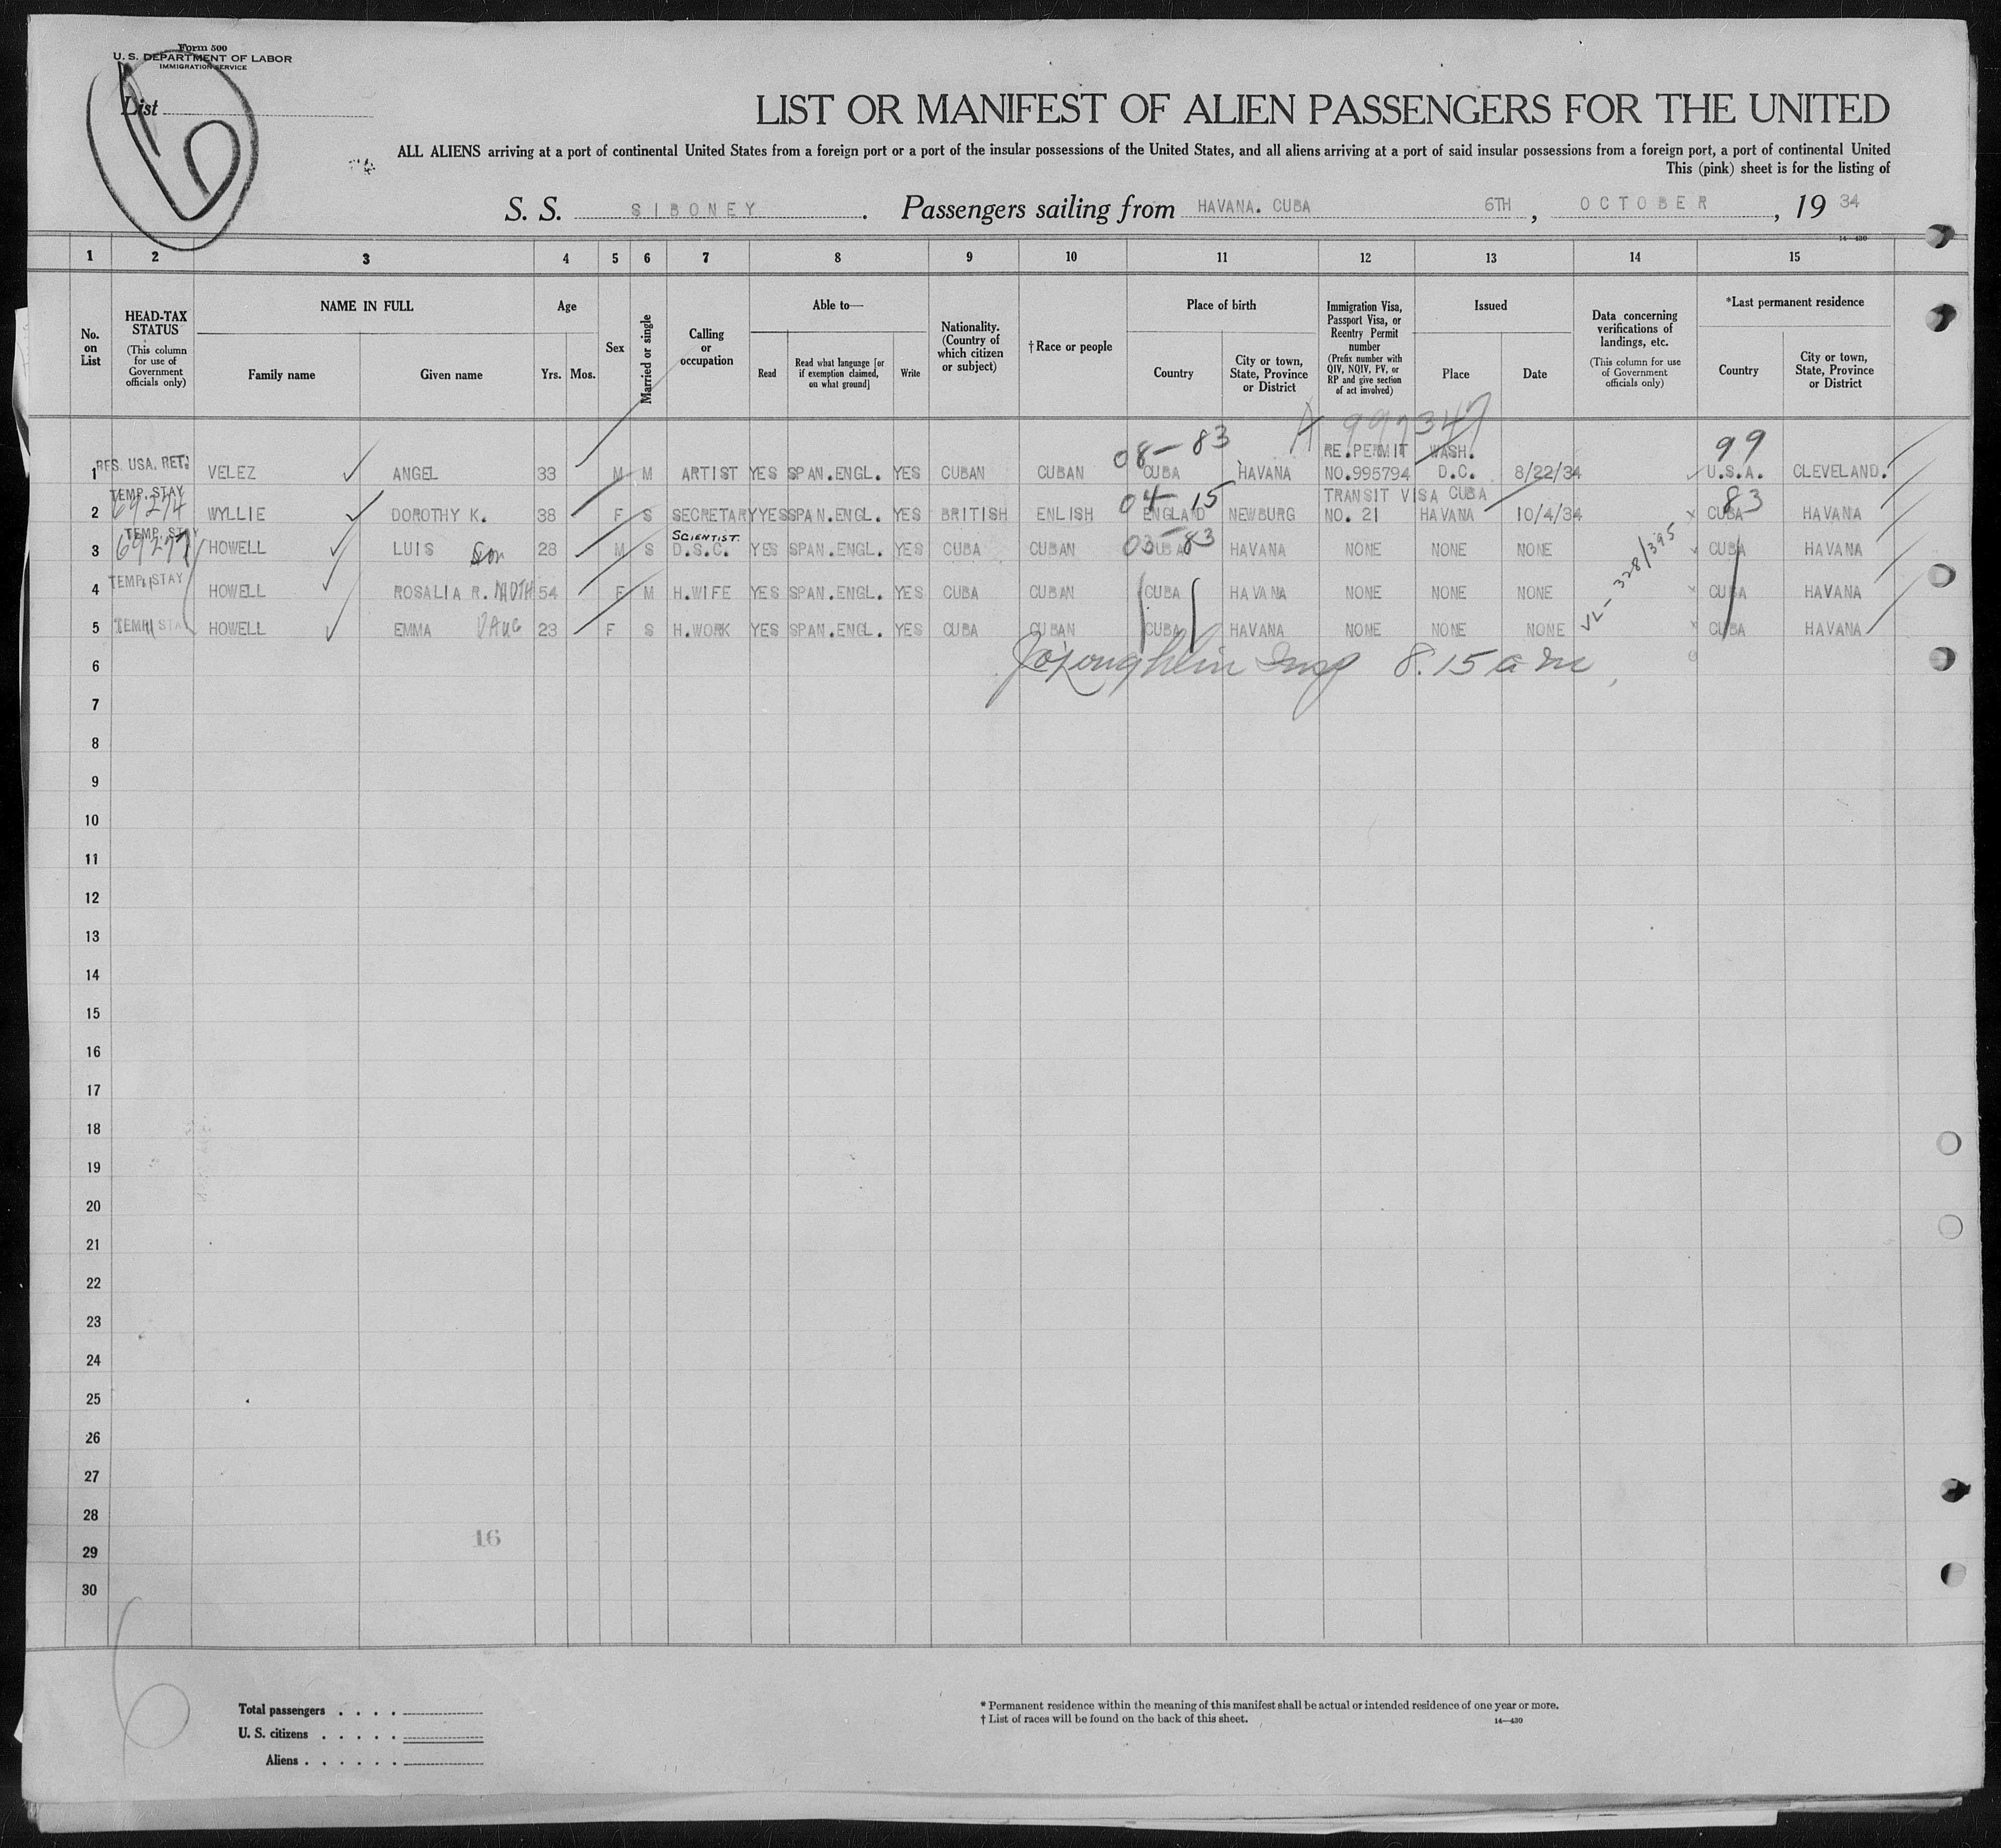 Form 500
U. S. DEPARTMENT OF LABOR
IMMIGRATION SERVICE
List
6
LIST OR MANIFEST OF ALIEN PASSENGERS FOR THE UNITED
ALL ALIENS arriving at a port of continental United States from a foreign port or a port of the insular possessions of the United States, and all aliens arriving at a port of said insular possessions from a foreign port, a port of continental United
This (pink) sheet is for the listing of
S. S. SIBONEY. Passengers sailing from HAVANA. CUBA 6TH, OCTOBER, 19 34
14—430
1 2 3 4 5 6 7 8 9 10 11 12 13 14 15
No. on List
HEAD-TAX STATUS (This column for use of Government officials only)
NAME IN FULL
Family name Given name
Age
Yrs. Mos.
Sex
Married or single
Calling or occupation
Able to—
Read Read what language [or if exemption claimed, on what ground] Write
Nationality. (Country of which citizen or subject)
† Race or people
Place of birth
Country City or town, State, Province or District
Immigration Visa, Passport Visa, or Reentry Permit number (Prefix number with QIV, NQIV, PV, or RP and give section of act involved)
Issued
Place Date
Data concerning verifications of landings, etc. (This column for use of Government officials only)
*Last permanent residence
Country City or town, State, Province or District
A 997347
08-83 RE.PERMIT WASH. 99
1 RES. USA. RET. VELEZ ANGEL 33 M M ARTIST YES SPAN.ENGL. YES CUBAN CUBAN CUBA HAVANA NO.995794 D.C. 8/22/34 U.S.A. CLEVELAND.
TEMP. STAY 04 15 TRANSIT VISA CUBA 83
2 69274 WYLLIE DOROTHY K. 38 F S SECRETARY YES SPAN.ENGL. YES BRITISH ENLISH ENGLAND NEWBURG NO. 21 HAVANA 10/4/34 CUBA HAVANA
TEMP. STAY SCIENTIST.
3 69277 HOWELL LUIS Son 28 M S D.S.C. YES SPAN.ENGL. YES CUBA CUBAN 03-83 CUBA HAVANA NONE NONE NONE CUBA HAVANA
4 TEMP. STAY HOWELL ROSALIA R. MOTH 54 F M H.WIFE YES SPAN.ENGL. YES CUBA CUBAN CUBA HAVANA NONE NONE NONE CUBA HAVANA
5 TEMP. STAY HOWELL EMMA DAUG 23 F S H.WORK YES SPAN.ENGL. YES CUBA CUBAN CUBA HAVANA NONE NONE NONE CUBA HAVANA
VL-328/395
6 Insp 8.15 a m
7
8
9
10
11
12
13
14
15
16
17
18
19
20
21
22
23
24
25
26
27
28
16
29
30
6
Total passengers . . . .
U. S. citizens . . . . .
Aliens . . . . . .
* Permanent residence within the meaning of this manifest shall be actual or intended residence of one year or more.
† List of races will be found on the back of this sheet. 14—430